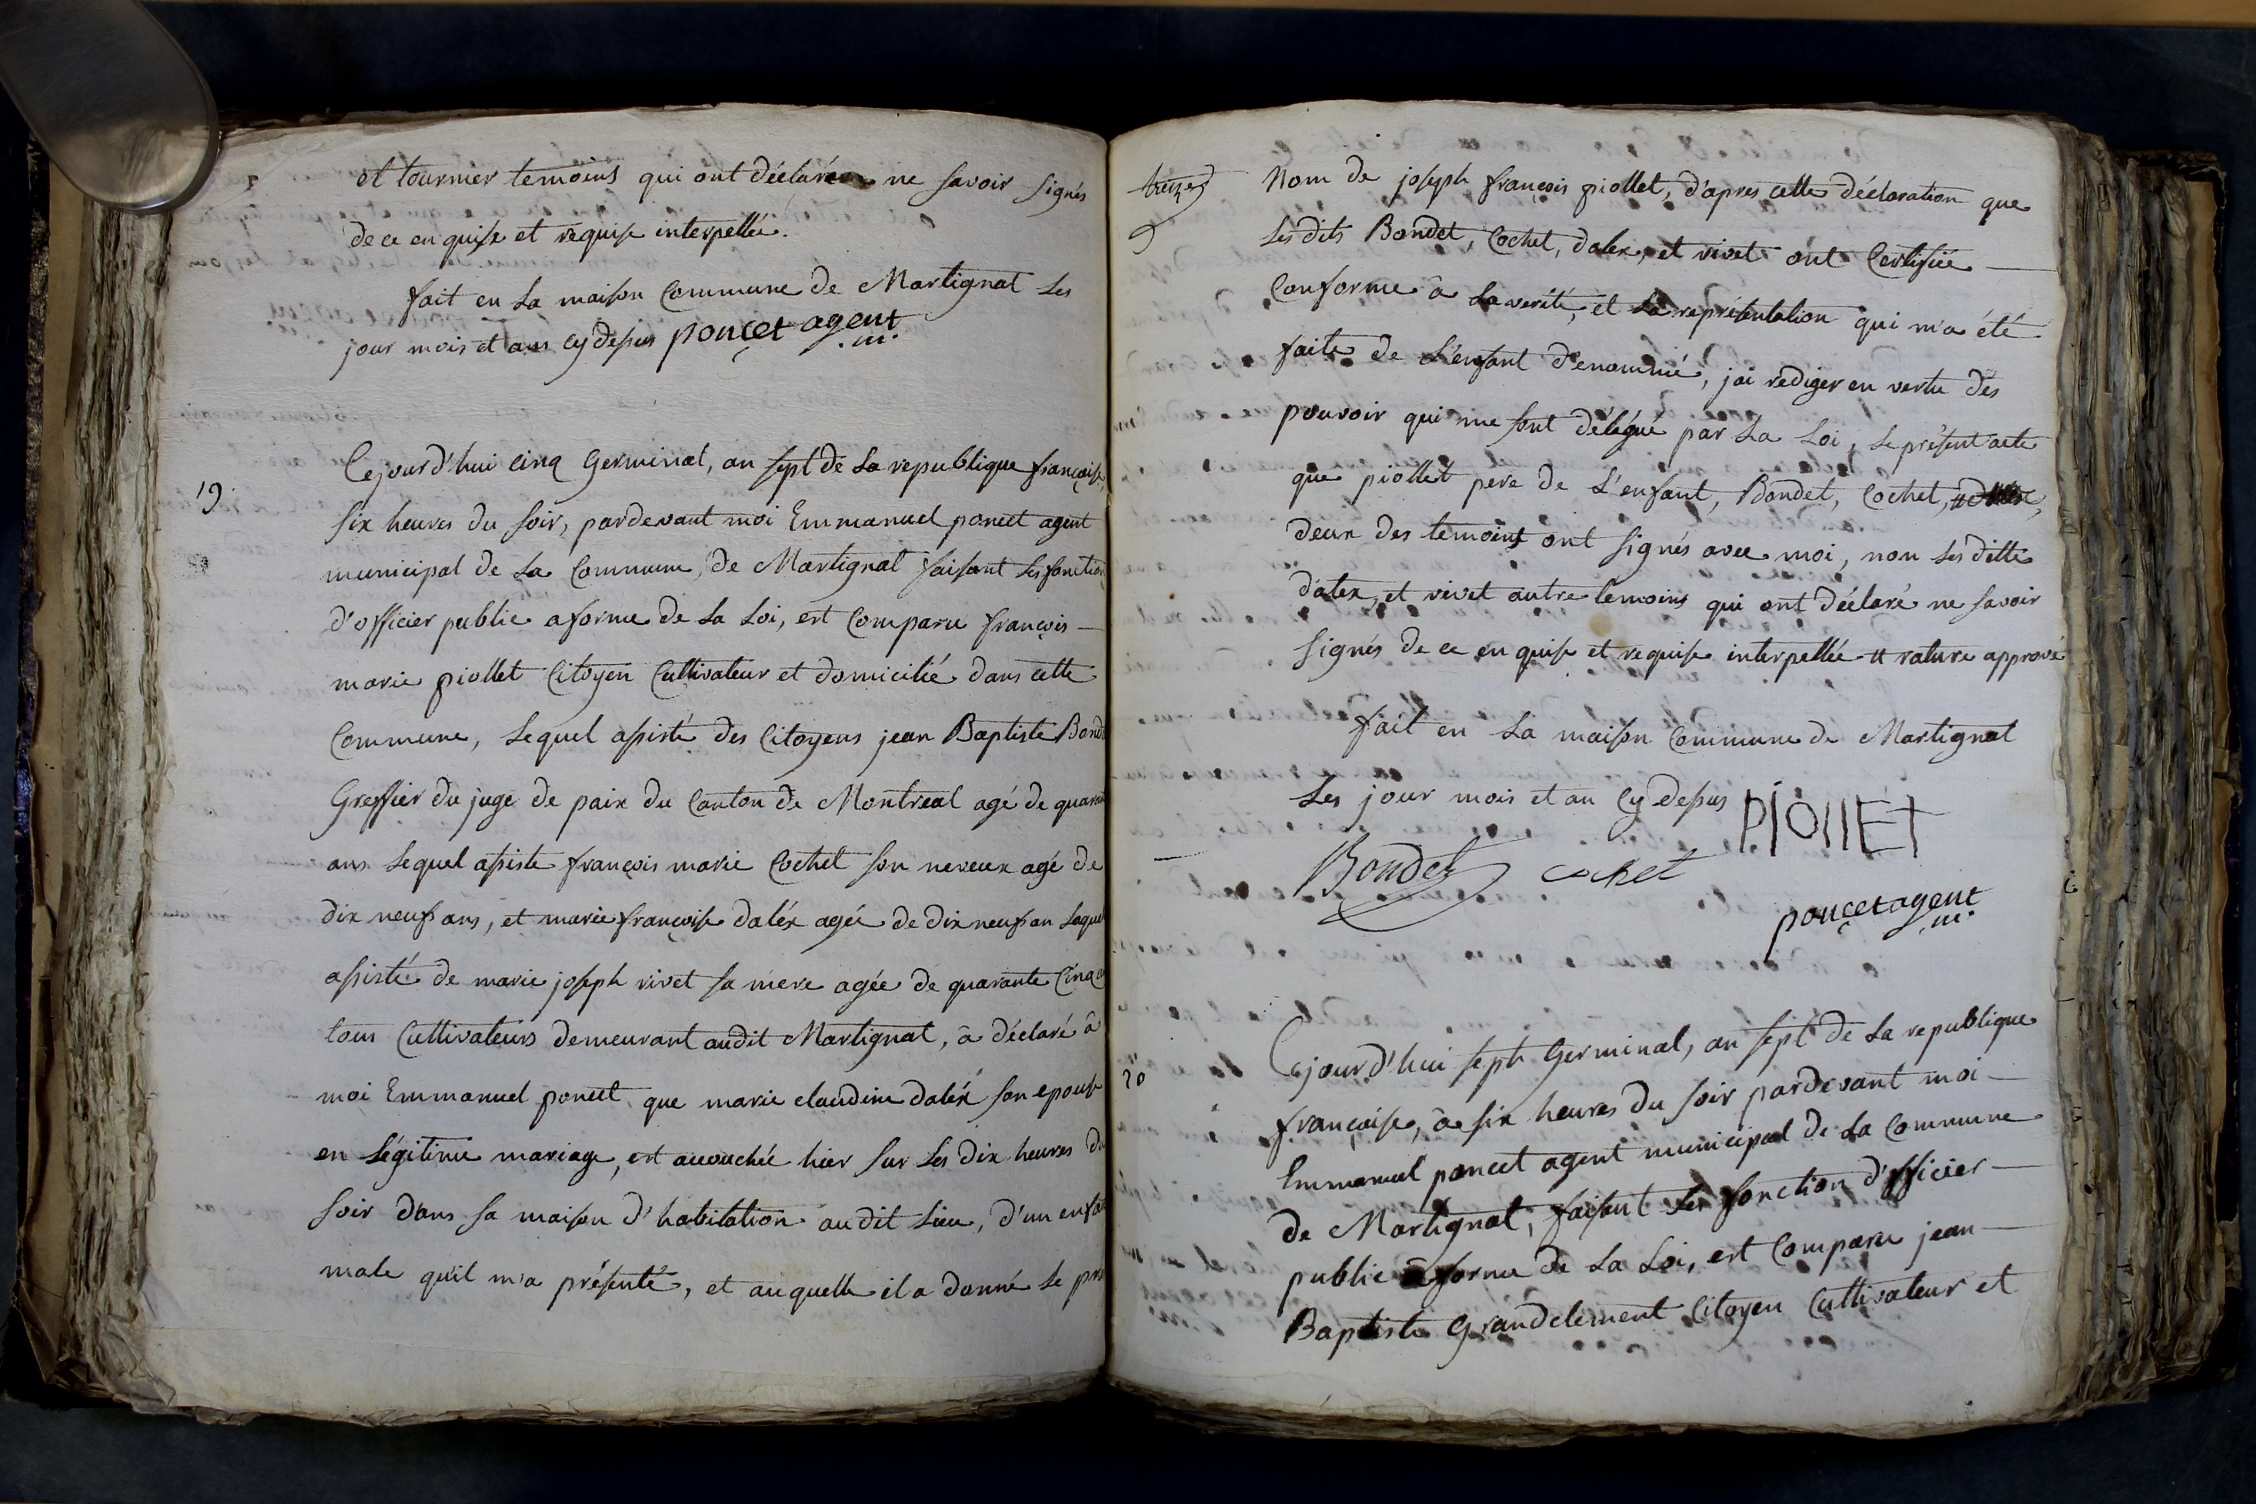 et tournier temoins qui ont déclarés ne savoir signés
de ce enquise et requise interpellée.
fait en La maison Commune de Martignat Les
jour mois et ans cy dessus poncet agent
.m.
19.
Cejourd'hui cinq Germinal, an sept de La republique françoise,
six heures du soir, pardevant moi Emmanuel poncet agent
municipal de La Commune, de Martignat faisant Les fonction
d'officier public a forme de La Loi, est Comparu françois —
marie piollet Citoyen Cultivateur et domicilié dans cette
Commune, Lequel assisté des Citoyens jean Baptiste Bond
Greffier du juge de paix du Canton de Montreal agé de quaran
ans Lequel assiste françois marie Cochet son neveux agé de
dix neuf ans, et marie françoise daléx agée de dix neuf an Laquel
assistée de marie joseph vivet sa mere agée de quarante Cinq
tous Cultivateurs demeurant audit Martignat, à déclaré à
moi Emmanuel poncet que marie claudine daléx son epouse
en Légitime mariage, est accouchée hier sur Les dix heures du
soir dans sa maison d'habitation audit Lieu, d'un enfa
male qu'il m'a présenté, et auquelle il a donné Le pré
treize
Nom de joseph françois piollet, d'apres cette déclaration que
Les dits Bondet, Cochet, dalex, et vivet ont Certifiée —
Conforme à La verité, et La représentation qui m'a été
faite de L'enfant dénommé, jai rediger en vertu des
pouvoir qui me sont délégué par La Loi, Le présent acte
que piollet pere de L'enfant, Bondet, Cochet,
deux des temoins ont signés avec moi, non Les ditte
dalex, et vivet autre temoins qui ont déclaré ne savoir
signés de ce enquise et requise interpellée # rature apprové
fait en La maison Commune de Martignat
Les jour mois et an cy dessus PIOLLET
Bondet cochet
poncet agent
.m.
20
Cejourd'hui sept Germinal, an sept de La republique
françaises, à six heures du soir pardevant moi —
Emmanuel poncet agent municipal de La Commune
de Martignat, faisant Les fonction d'officier —
public à forme de La Loi, est Comparu jean —
Baptiste Grandclement Citoyen Cultivateur et